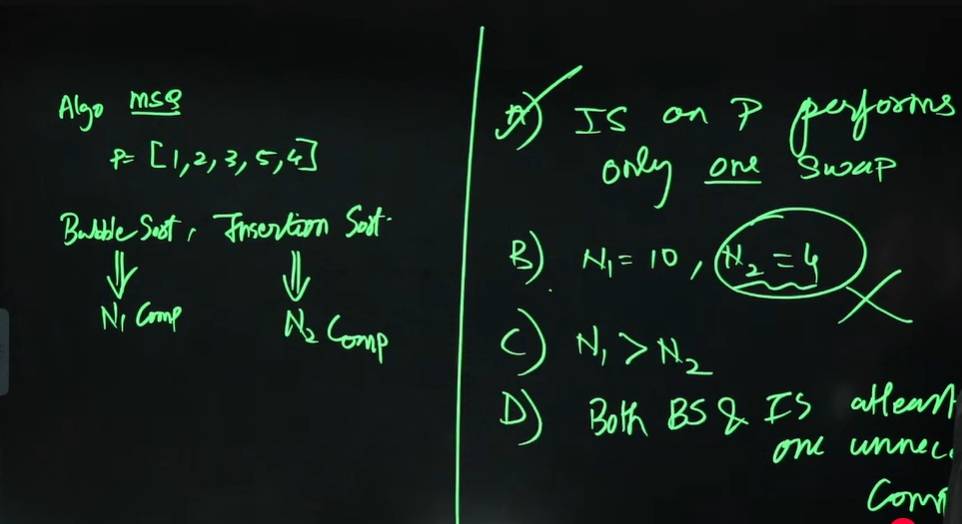 Algo MSQ
P= [1,2,3,5,4]
Bubble Sort, Insertion Sort.
N₁ Comp
N₂ Comp
A) IS on P performs
only one swap
B). N₁ = 10, N₂ = 4
C) N₁ > N₂
D) Both BS & IS atleast
one unnec.
Com